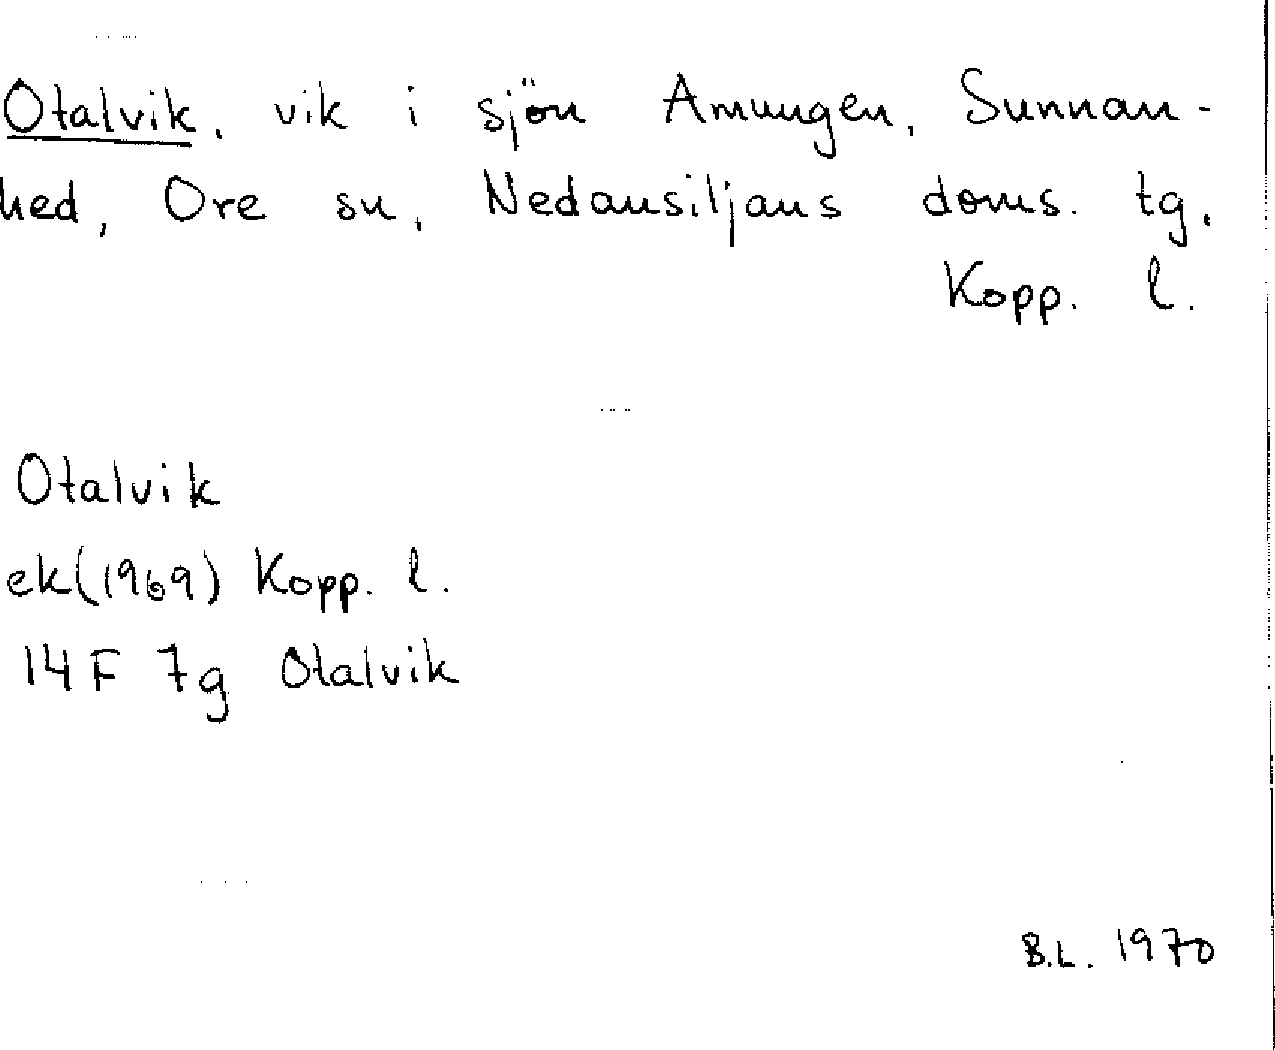 Otalvik, vik i sjön Amungen, Sunnan-
hed, Ore sn, Nedansiljans doms. tg,
Kopp. l.
Otalvik
ek(1969) Kopp. l.
14F 7g Otalvik
B.L. 1970